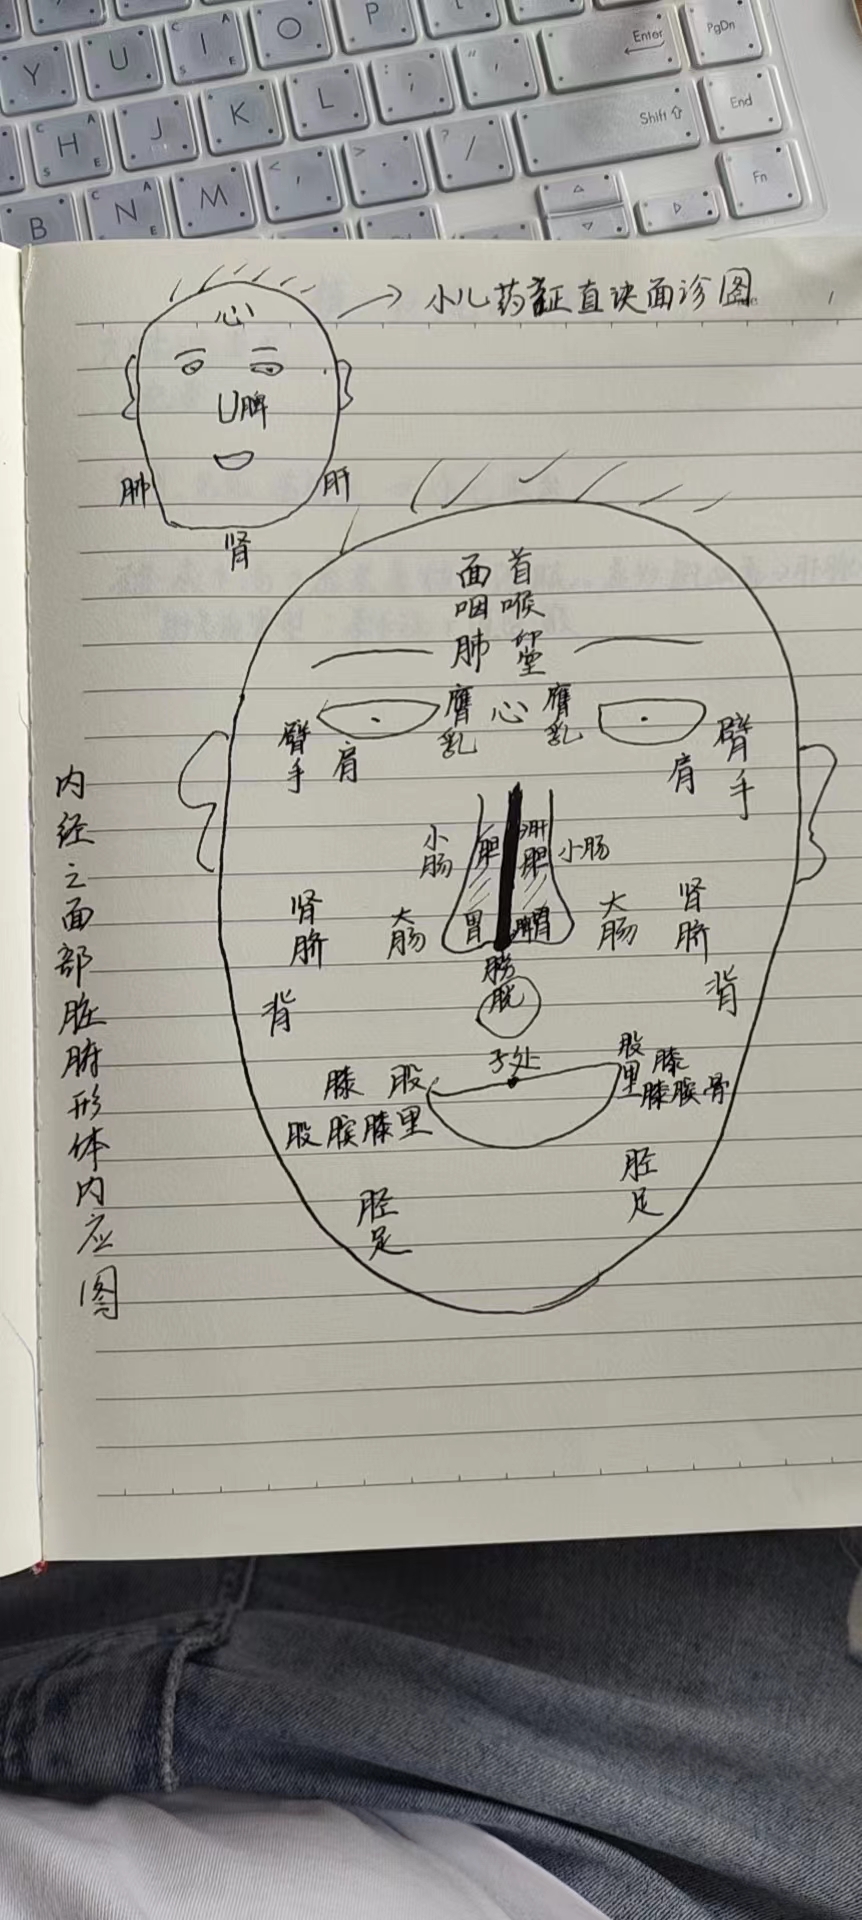 P
Y U I O
Enter
PgDn
H J K L ; "
Shift
End
B N M < , > . ? /
Fn
小儿药证直诀面诊图
心
脾
肺
肝
肾
内经之面部脏腑形体内应图
面首
咽喉
肺 印堂
膺乳 心 膺乳
臂手 肩
肩 臂手
小肠 胆 肝胆 小肠
肾脐 大肠 胃 脾胃 大肠 肾脐
背
背
膀胱
子处
膝 股里
股膝膑
股里 膝
膝膑骨
胫足
胫足